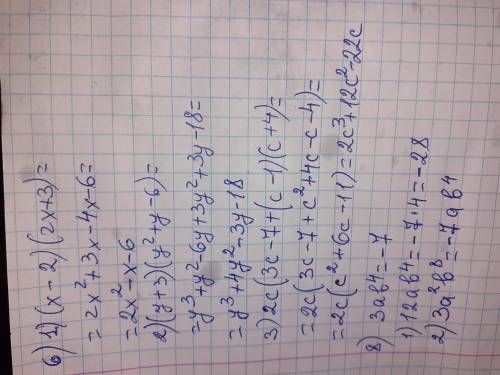 6) 1) (x-2)(2x+3)=
=2x²+3x-4x-6=
=2x²-x-6
2) (y+3)(y²+y-6)=
=y³+y²-6y+3y²+3y-18=
=y³+4y²-3y-18
3) 2c(3c-7+(c-1)(c+4)=
=2c(3c-7+c²+4c-c-4)=
=2c(c²+6c-11)=2c³+12c²-22c
8) 3ab⁴=-7
1) 12ab⁴=-7·4=-28
2) 3a²b⁸=-7ab⁴